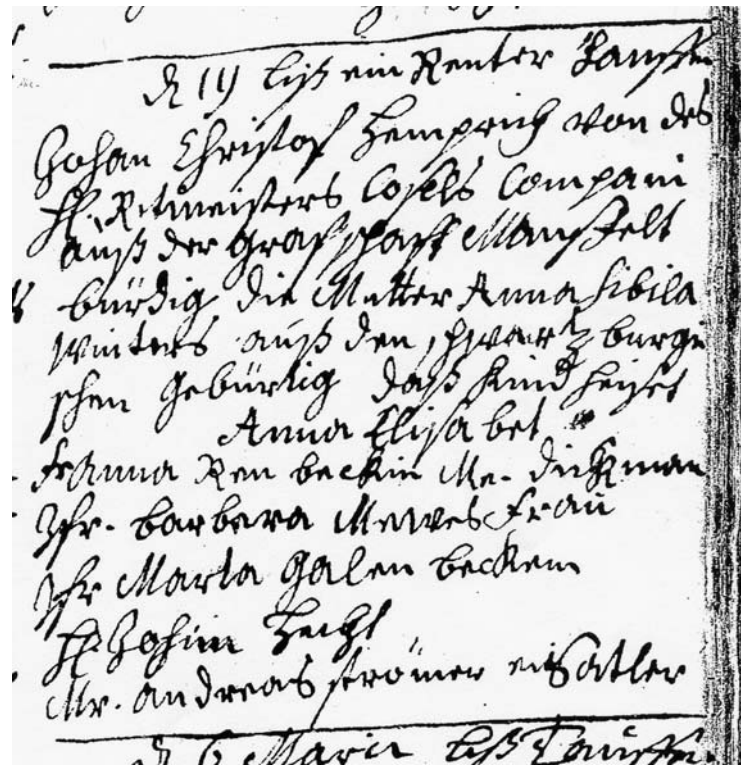 d 19 ließ ein Reuter Tauffen
Johan Christof Hemprich von des
H. Ritmeisters Cosels Compani
auß der Grafschafft Mansfelt
bürdig die Mutter Anna Sibila
Winters auß den schwartzburgi
schen gebürtig daß kind heiset
Anna Elisabet
Fr Anna Ren beckin Me. dickman
Jfr. barbera Mewes Frau
Jfr Maria Galen beckem
H. Johim Hecht
Mr. andreas strömer ein Satler
d 6 ließ Tauffen